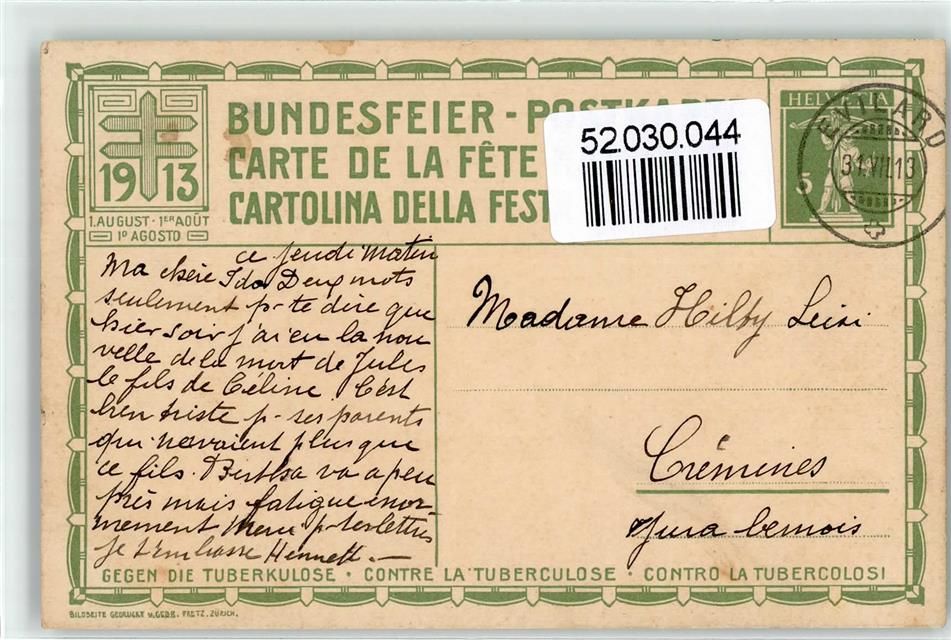 BUNDESFEIER - POSTKARTE
CARTE DE LA FÊTE
CARTOLINA DELLA FEST
52.030.044
19 13
1. AUGUST · 1ER AOÛT
1º AGOSTO
HELVETIA
5
EVILARD
31.VII.13
ce jeudi Matin
Ma chère Ida Deux mots
seulement pr te dire que
hier soir j'ai eu la nou
velle de la mort de Jules
le fils de Céline. C'est
bien triste p- ses parents
qui n'avaient plus que
ce fils. Bertha va a peu
près mais fatigue énor-
mement Merci p- tes lettres
je t'embrasse
Madame Hilby Leisi
Crémines
Jura bernois
GEGEN DIE TUBERKULOSE · CONTRE LA TUBERCULOSE · CONTRO LA TUBERCOLOSI
BILDSEITE GEDRUCKT V. GEBR. FRETZ. ZÜRICH.